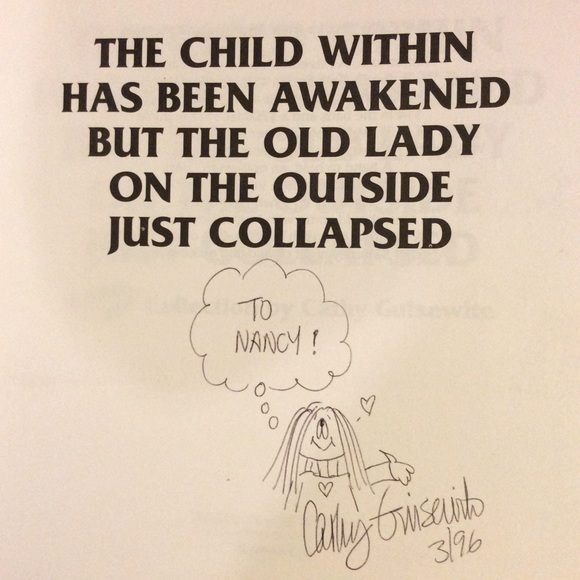 THE CHILD WITHIN
HAS BEEN AWAKENED
BUT THE OLD LADY
ON THE OUTSIDE
JUST COLLAPSED
Collection by Cathy Guisewite
TO
NANCY!
Cathy Guisewite
3/96